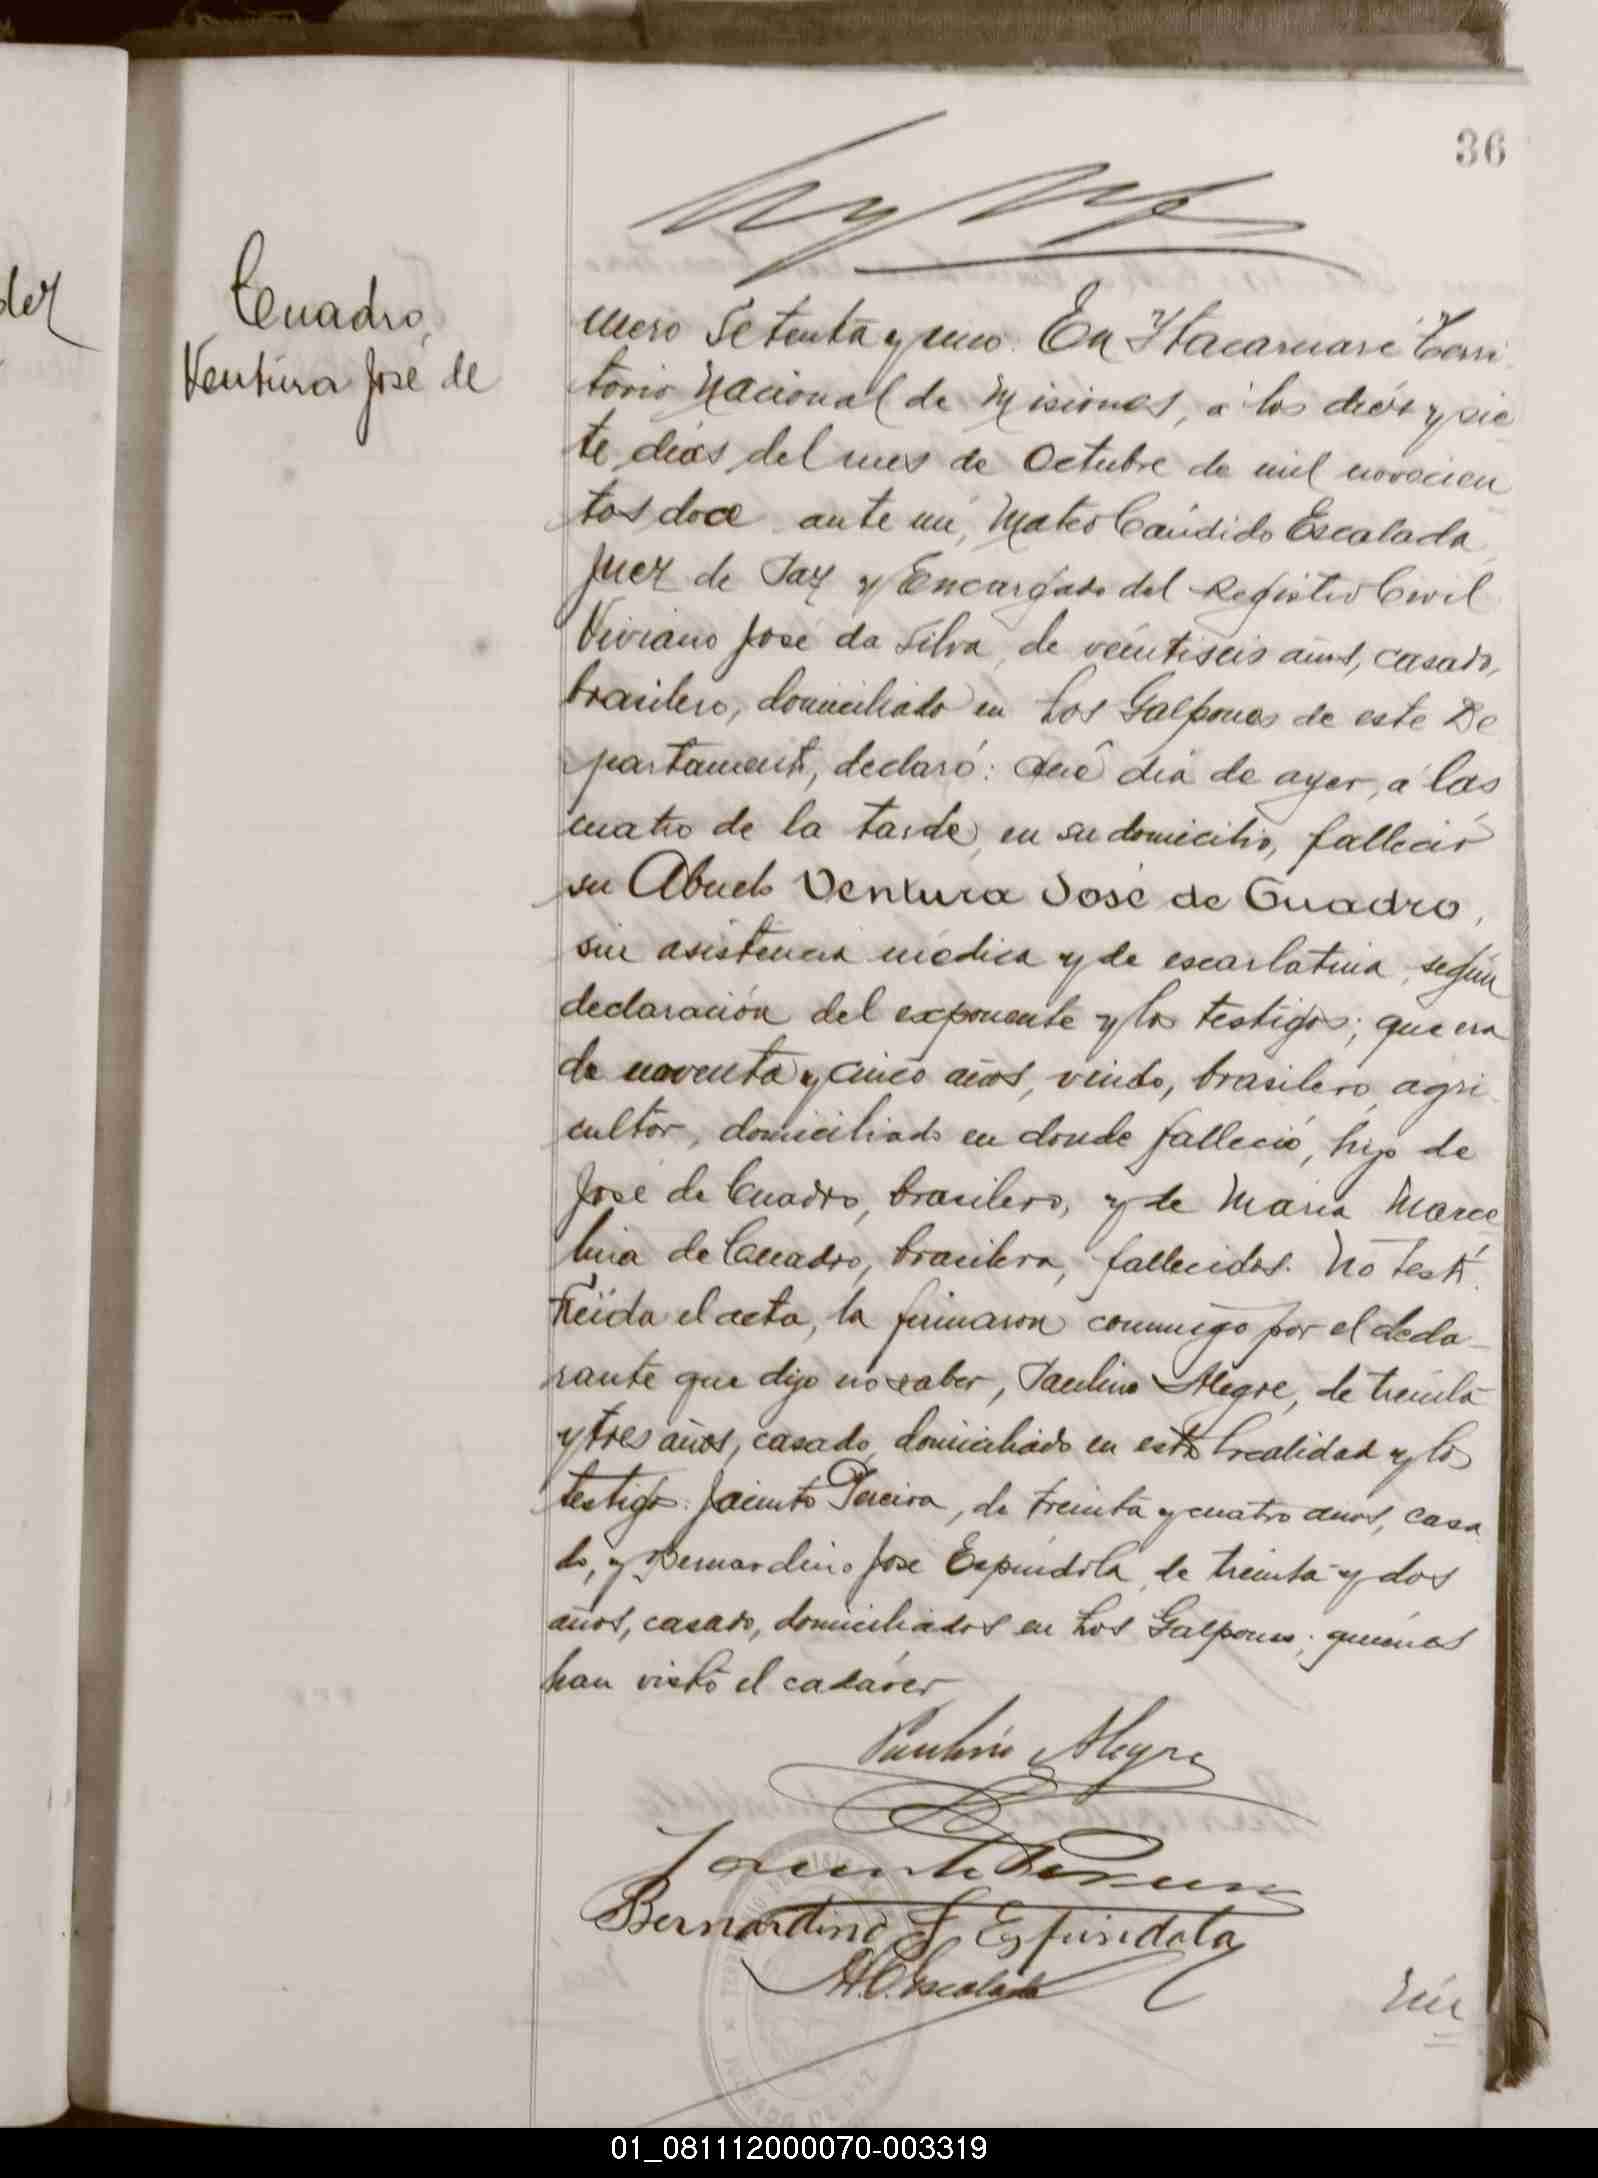 36
der
Cuadro,
Ventura José de
mero Setenta y uno. En Itacaruaré Terri
torio Nacional de Misiones, á los diez y sie
te dias del mes de Octubre de mil novecien
tos doce ante mí, Mateo Cándido Escalada
Juez de Paz y Encargado del Registro Civil
Viviano José da Silva, de veintiseis años, casado,
brasilero, domiciliado en Los Galpones de este De
partamento, declaró: Que día de ayer, á las
cuatro de la tarde, en su domicilio, falleció
su Abuelo Ventura José de Cuadro,
sin asistencia médica y de escarlatina, según
declaración del exponente y los testigos; que era
de noventa y cinco años, viudo, brasilero, agri
cultor, domiciliado en donde falleció, hijo de
José de Cuadro, brasilero, y de Maria Marce
lina de Cuadro, brasilera, fallecidos. No testó.
Leída el acta, la firmaron conmigo por el decla-
rante que dijo no saber, Paulino Alegre, de treinta
y tres años, casado, domiciliado en esta localidad y los
testigos: Jacinto Pereira, de treinta y cuatro años, casa
do, y Bernardino José Espindola, de treinta y dos
años, casado, domiciliados en Los Galpones; quienes
han visto el cadáver
Paulino Alegre
Jacinto Pereira
Bernardino J Espindola
M. C. Escalada
Nú
01_081112000070-003319